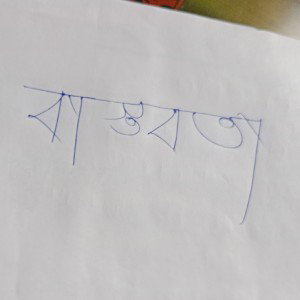 বাস্তবতা